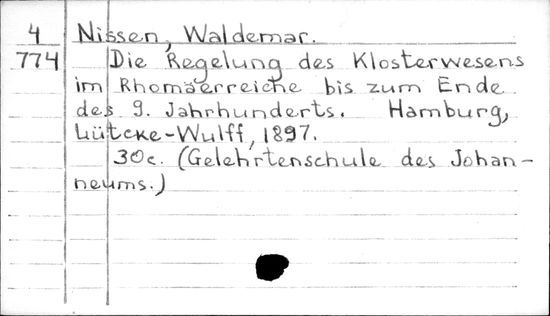 4 Nissen, Waldemar.
774 Die Regelung des Klosterwesens
im Rhomäerreiche bis zum Ende
des 9. Jahrhunderts. Hamburg,
Lütcke-Wulff, 1897.
30c. (Gelehrtenschule des Johan-
neums.)